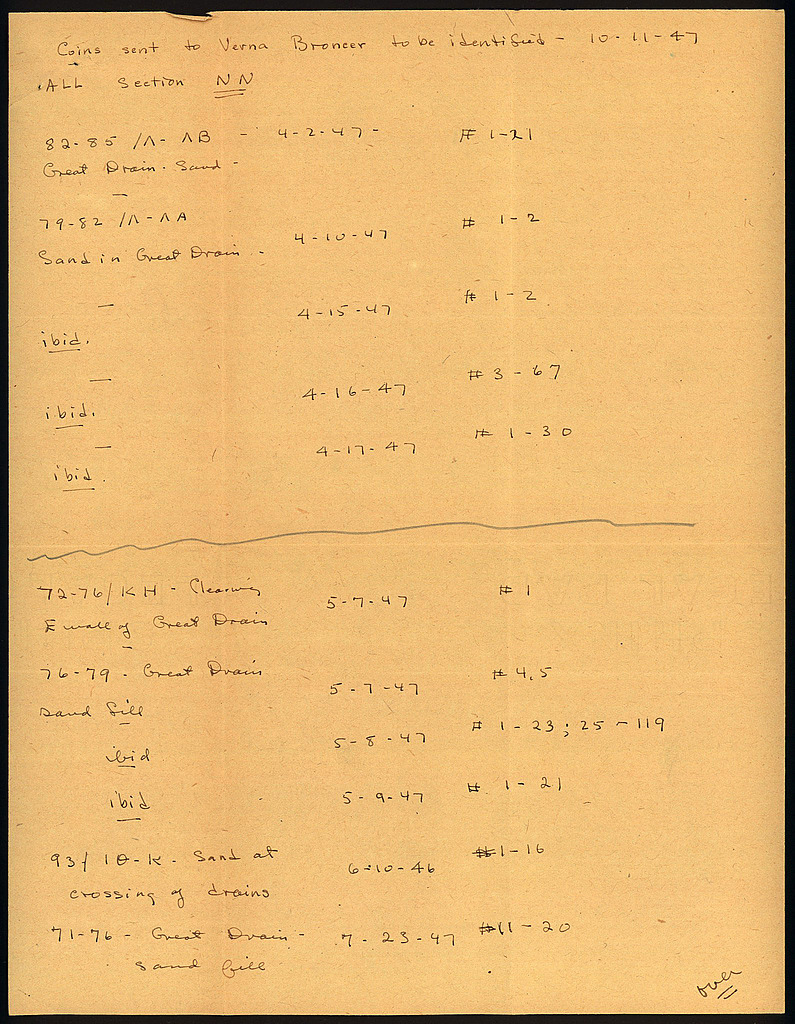 Coins sent to Verna Broneer to be identified - 10-11-47
ALL Section NN
82-85 /Λ-ΛB - 4-2-47 - # 1-21
Great Drain. Sand -
79-82 /Λ-ΛA
4-10-47 # 1-2
Sand in Great Drain -
4-15-47 # 1-2
ibid.
4-16-47 # 3-67
ibid.
4-17-47 # 1-30
ibid.
72-76/KH - Clearing
5-7-47 # 1
E wall of Great Drain
76-79 - Great Drain
5-7-47 # 4,5
sand fill
5-8-47 # 1-23; 25-119
ibid
ibid 5-9-47 # 1-21
93/IΘ-K - Sand at
6-10-46 # 1-16
crossing of drains
71-76 - Great Drain - 7-23-47 # 11-20
sand fill
over